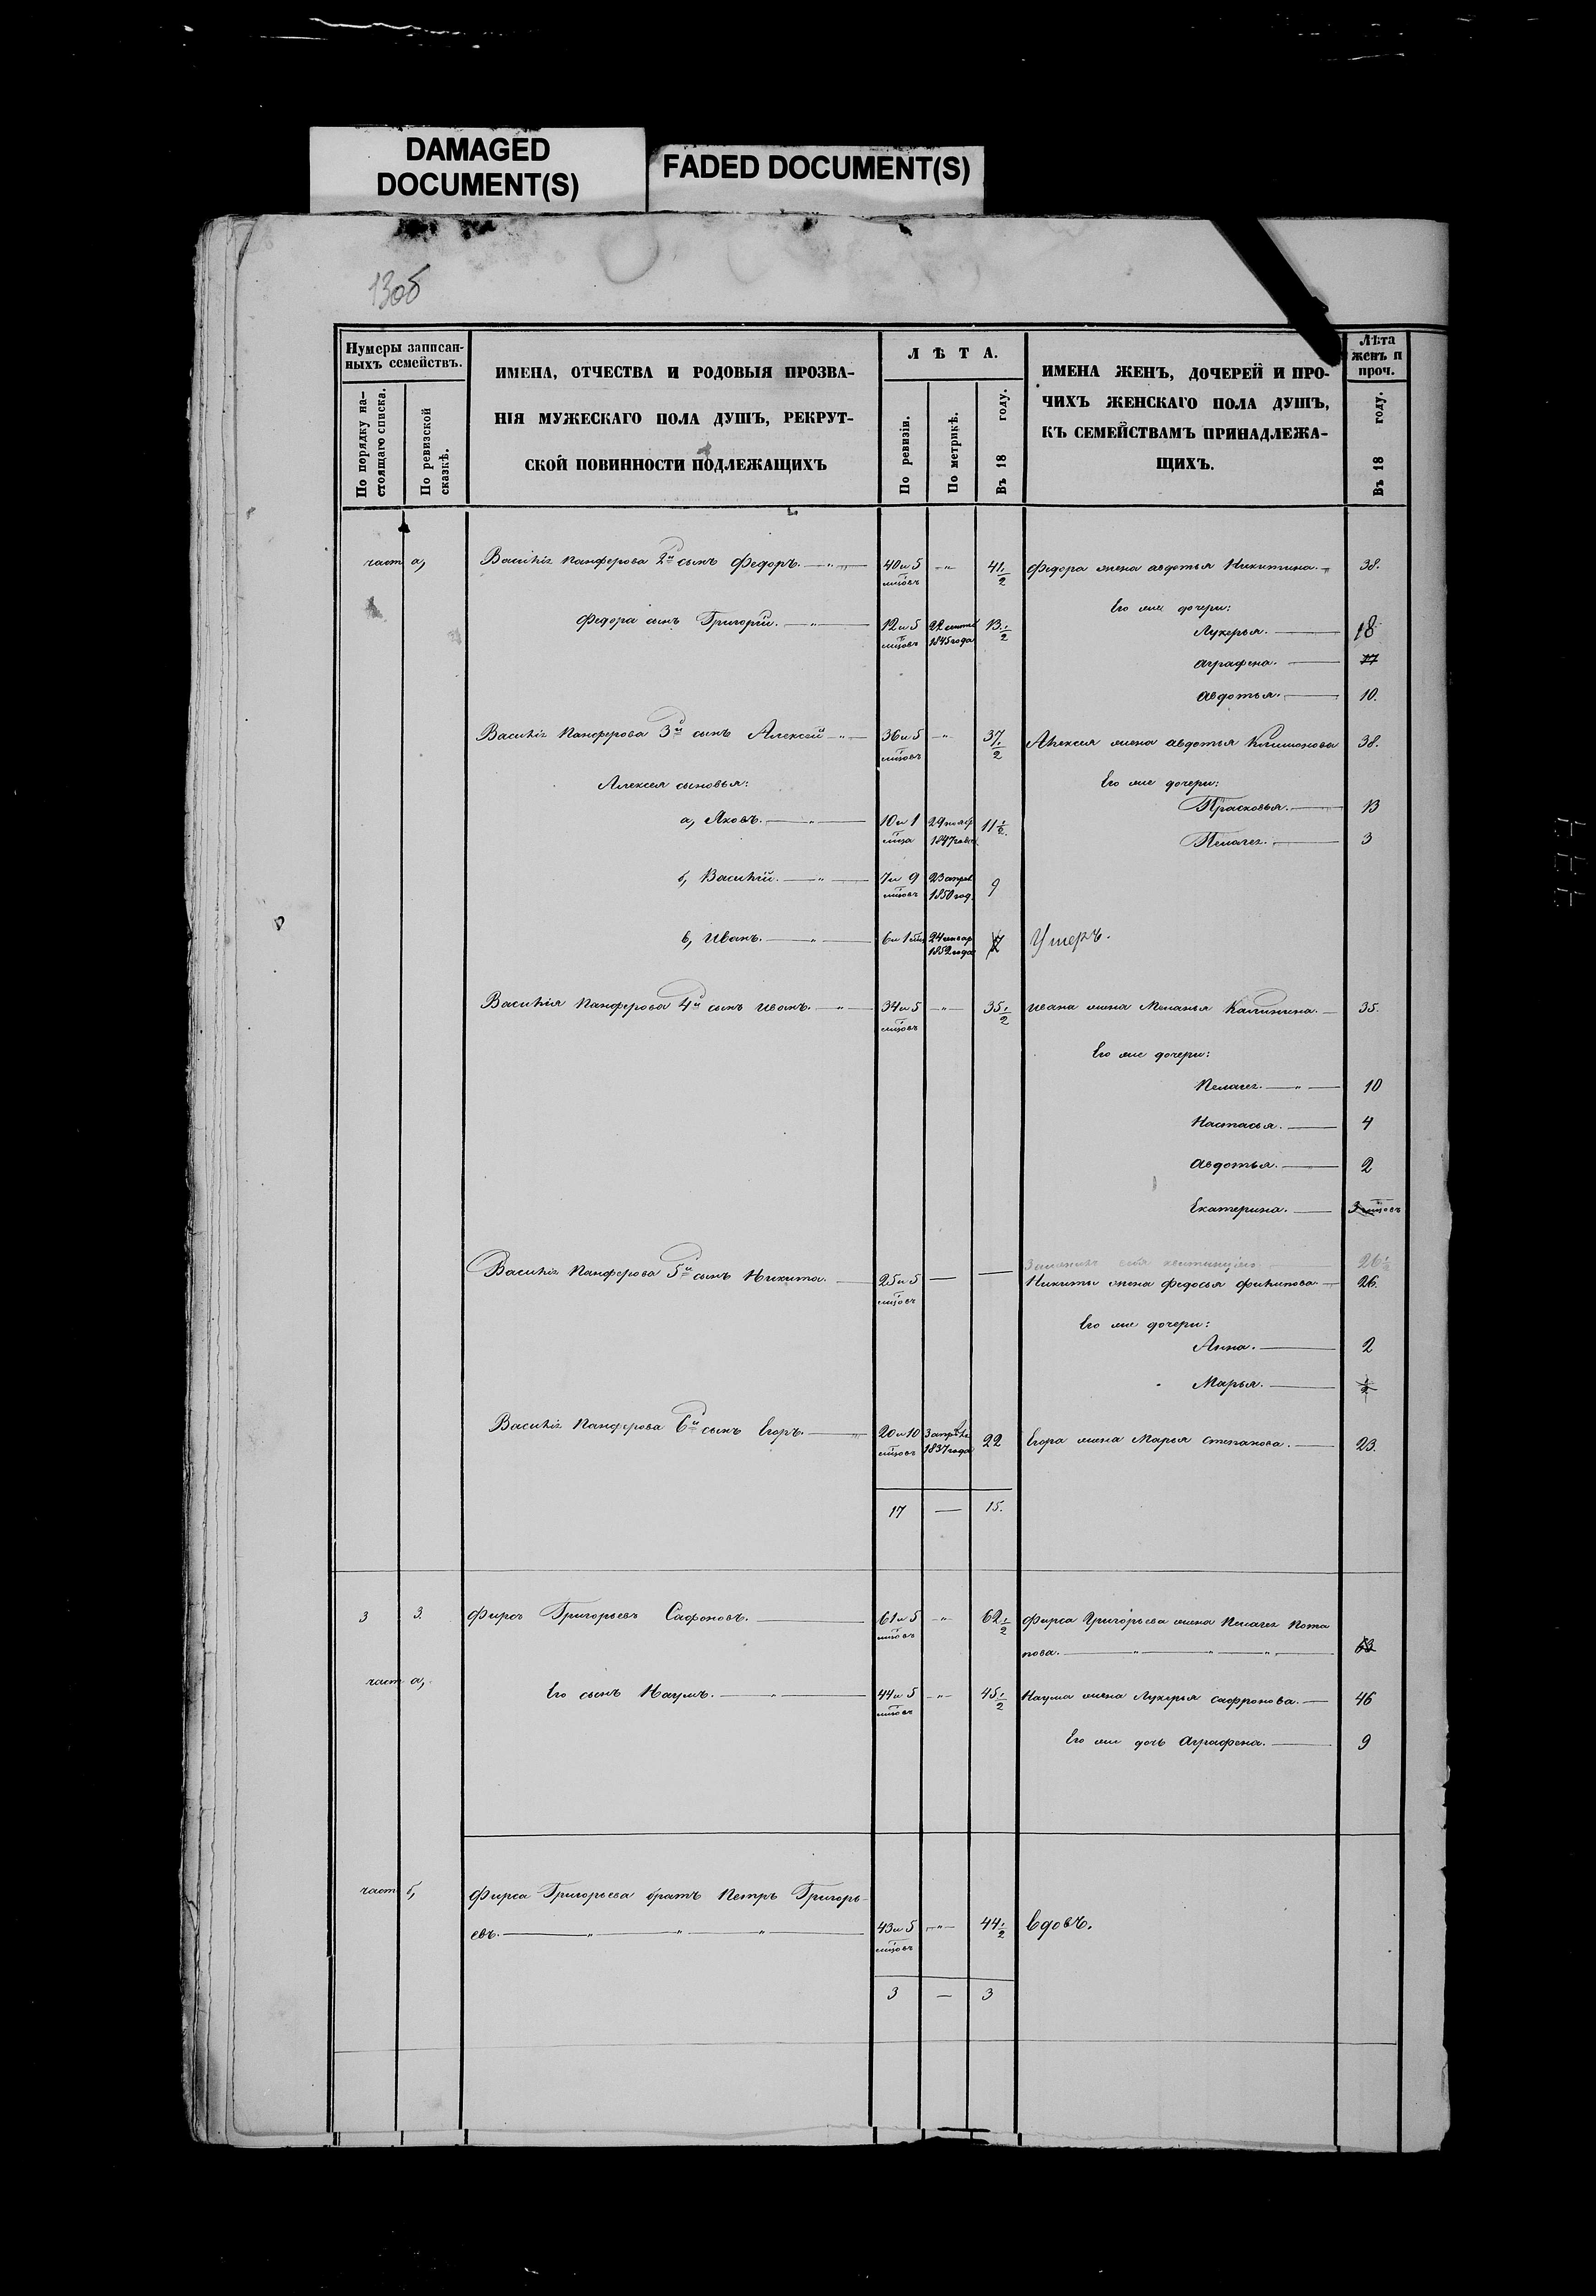 DAMAGED
DOCUMENT(S)
FADED DOCUMENT(S)
13об
Нумеры записан-
ныхъ семействъ.
По порядку на-
стоящаго списка.
По ревизской
сказкѣ.
ИМЕНА, ОТЧЕСТВА И РОДОВЫЯ ПРОЗВА-
НІЯ МУЖЕСКАГО ПОЛА ДУШЪ, РЕКРУТ-
СКОЙ ПОВИННОСТИ ПОДЛЕЖАЩИХЪ
ЛѢТА.
По ревизіи.
По метрикѣ.
Въ 18 году.
ИМЕНА ЖЕНЪ, ДОЧЕРЕЙ И ПРО-
ЧИХЪ ЖЕНСКАГО ПОЛА ДУШЪ,
КЪ СЕМЕЙСТВАМЪ ПРИНАДЛЕЖА-
ЩИХЪ.
Лѣта
женъ и
проч.
Въ 18 году.
част а, Василія Панферова 2й сынъ Федоръ. 40 и 5 мцовъ 41 1/2 Федора жена Авдотья Никитина. 38.
Его же дочери:
Федора сынъ Григорій. 12 и 5 мцовъ 22 1845 года 13 1/2 Лукерья. 18
Аграфена. 17
Авдотья. 10.
Василія Панферова 3й сынъ Алексей 36 и 5 мцовъ 37 1/2 Алексея жена Авдотья 38.
Алексея сыновья: Его же дочери:
Прасковья. 13
а, Яковъ. 10 и 1 мца 29 1847 года 11 1/2.
Пелагея. 3
б, Василій. 7 и 9 мцовъ 23 апрел 1850 год. 9
в, Иванъ. 6 и 1 мца 24 генвар 1852 года 7 Умеръ.
Василія Панферова 4й сынъ Иванъ. 34 и 5 мцовъ 35 1/2 Ивана жена Меланья Калинина. 35.
Его же дочери:
Пелагея. 10
Настасья. 4
Авдотья. 2
Екатерина. 3 мцовъ
26 1/2
Василія Панферова 5й сынъ Никита. 25 и 5 мцовъ Никиты жена Федосья Филипова. 26.
Его же дочери:
Анна. 2
Марья. 1/2
Василія Панферова 6й сынъ Егоръ. 20 и 10 мцовъ 3 апреля 1837 года 22 Егора жена Марья Степанова. 23.
17 — 15.
3 3. Фирсъ Григорьевъ Сафоновъ. 61 и 5 мцовъ 62 1/2 Фирса Григорьева жена Пелагея Пота
пова. 63
част а, Его сынъ Наумъ. 44 и 5 мцовъ 45 1/2 Наума жена Лукерья Сафронова. 46
Его же дочь Аграфена. 9
част б, Фирса Григорьева братъ Петръ Григорь-
евъ. 43 и 5 мцовъ 44 1/2 вдовъ.
3 — 3